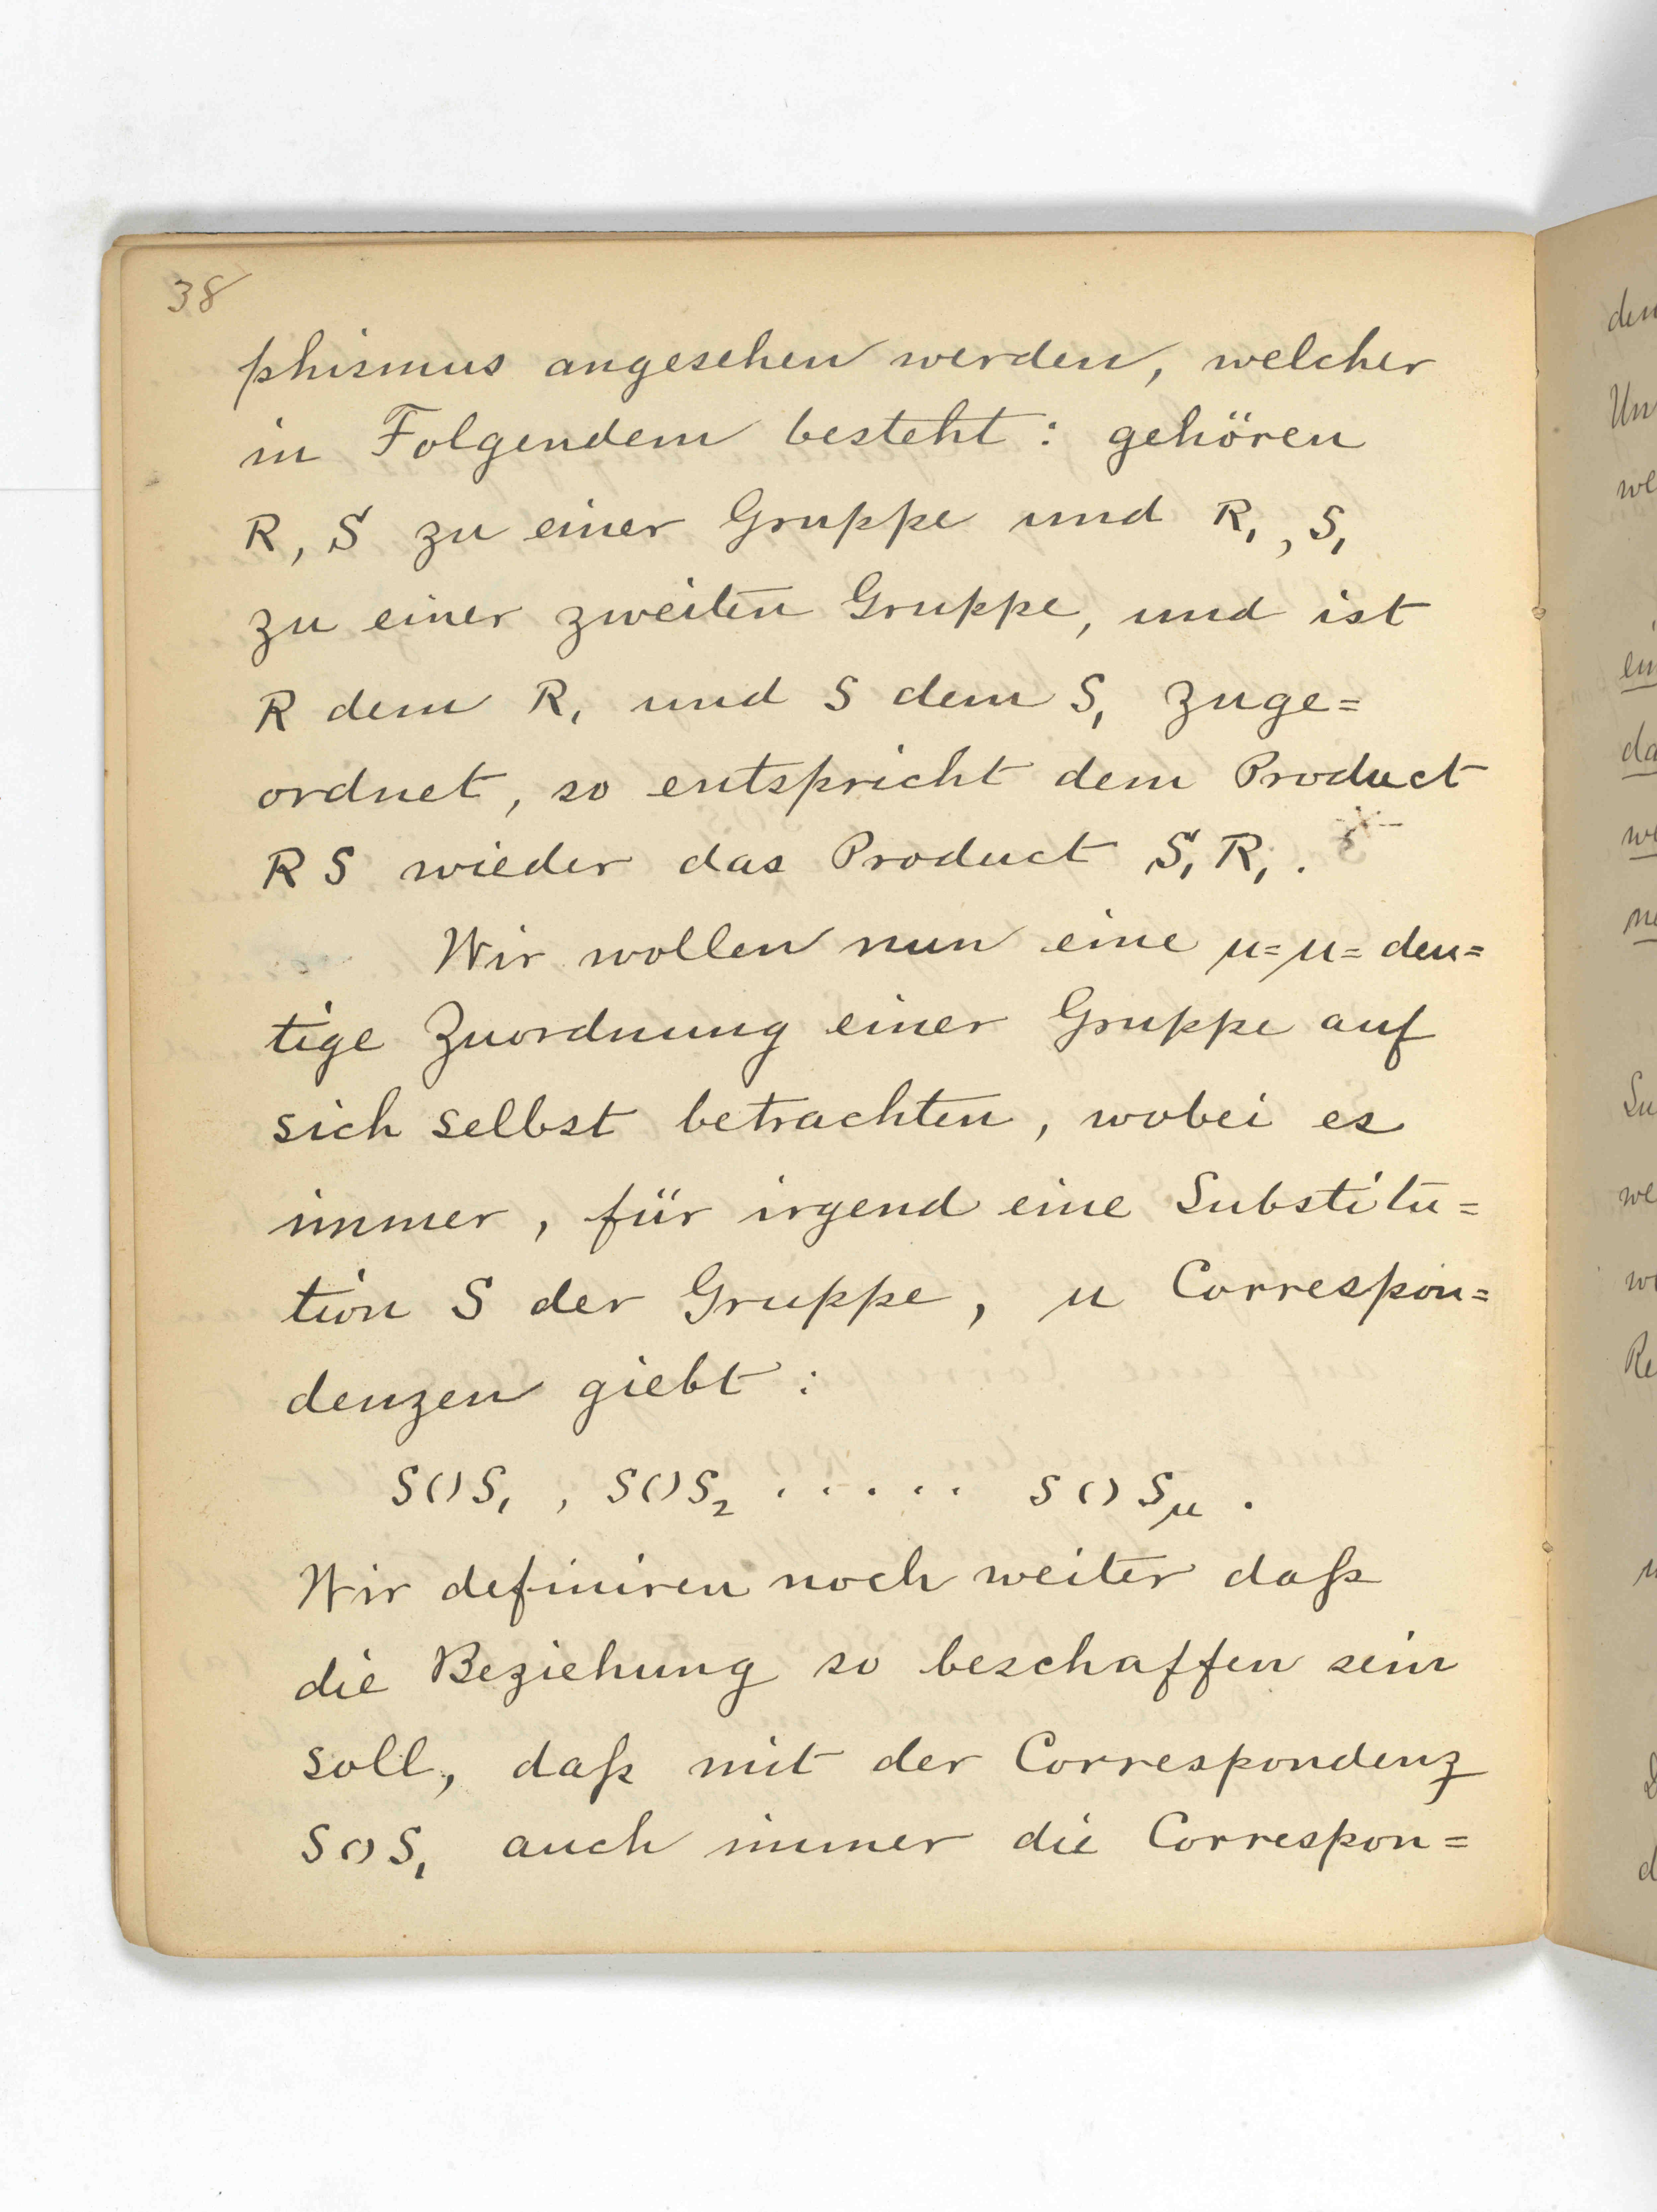 38
phismus angesehen werden, welcher
in Folgendem besteht: gehören
R, S zu einer Gruppe und R₁, S₁
zu einer zweiten Gruppe, und ist
R dem R₁ und S dem S₁ zuge=
ordnet, so entspricht dem Product
R S wieder das Product S₁ R₁.
Wir wollen nun eine μ=μ=deu=
tige Zuordnung einer Gruppe auf
sich selbst betrachten, wobei es
immer, für irgend eine Substitu=
tion S der Gruppe, μ Correspon=
denzen giebt:
S()S₁, S()S₂ ..... S()Sμ.
Wir definiren noch weiter daß
die Beziehung so beschaffen sein
soll, daß mit der Correspondenz
S()S₁ auch immer die Correspon=